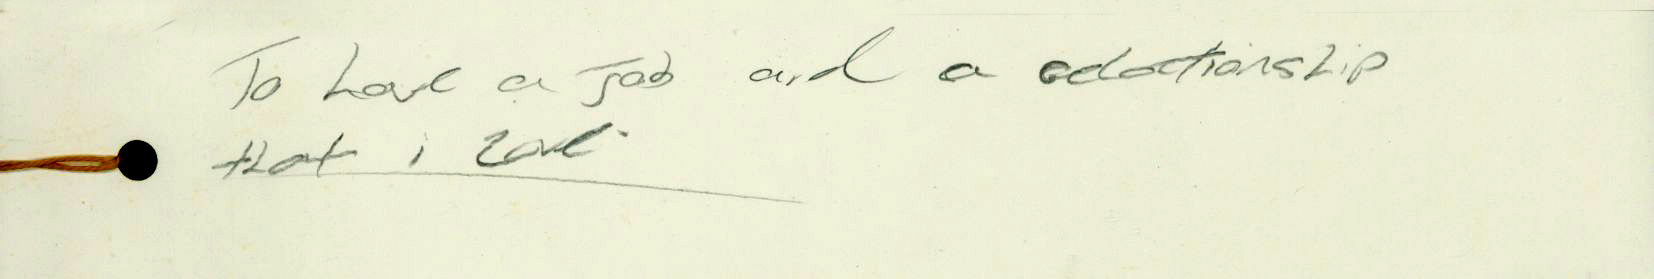 To have a Job and a relationship
that i love